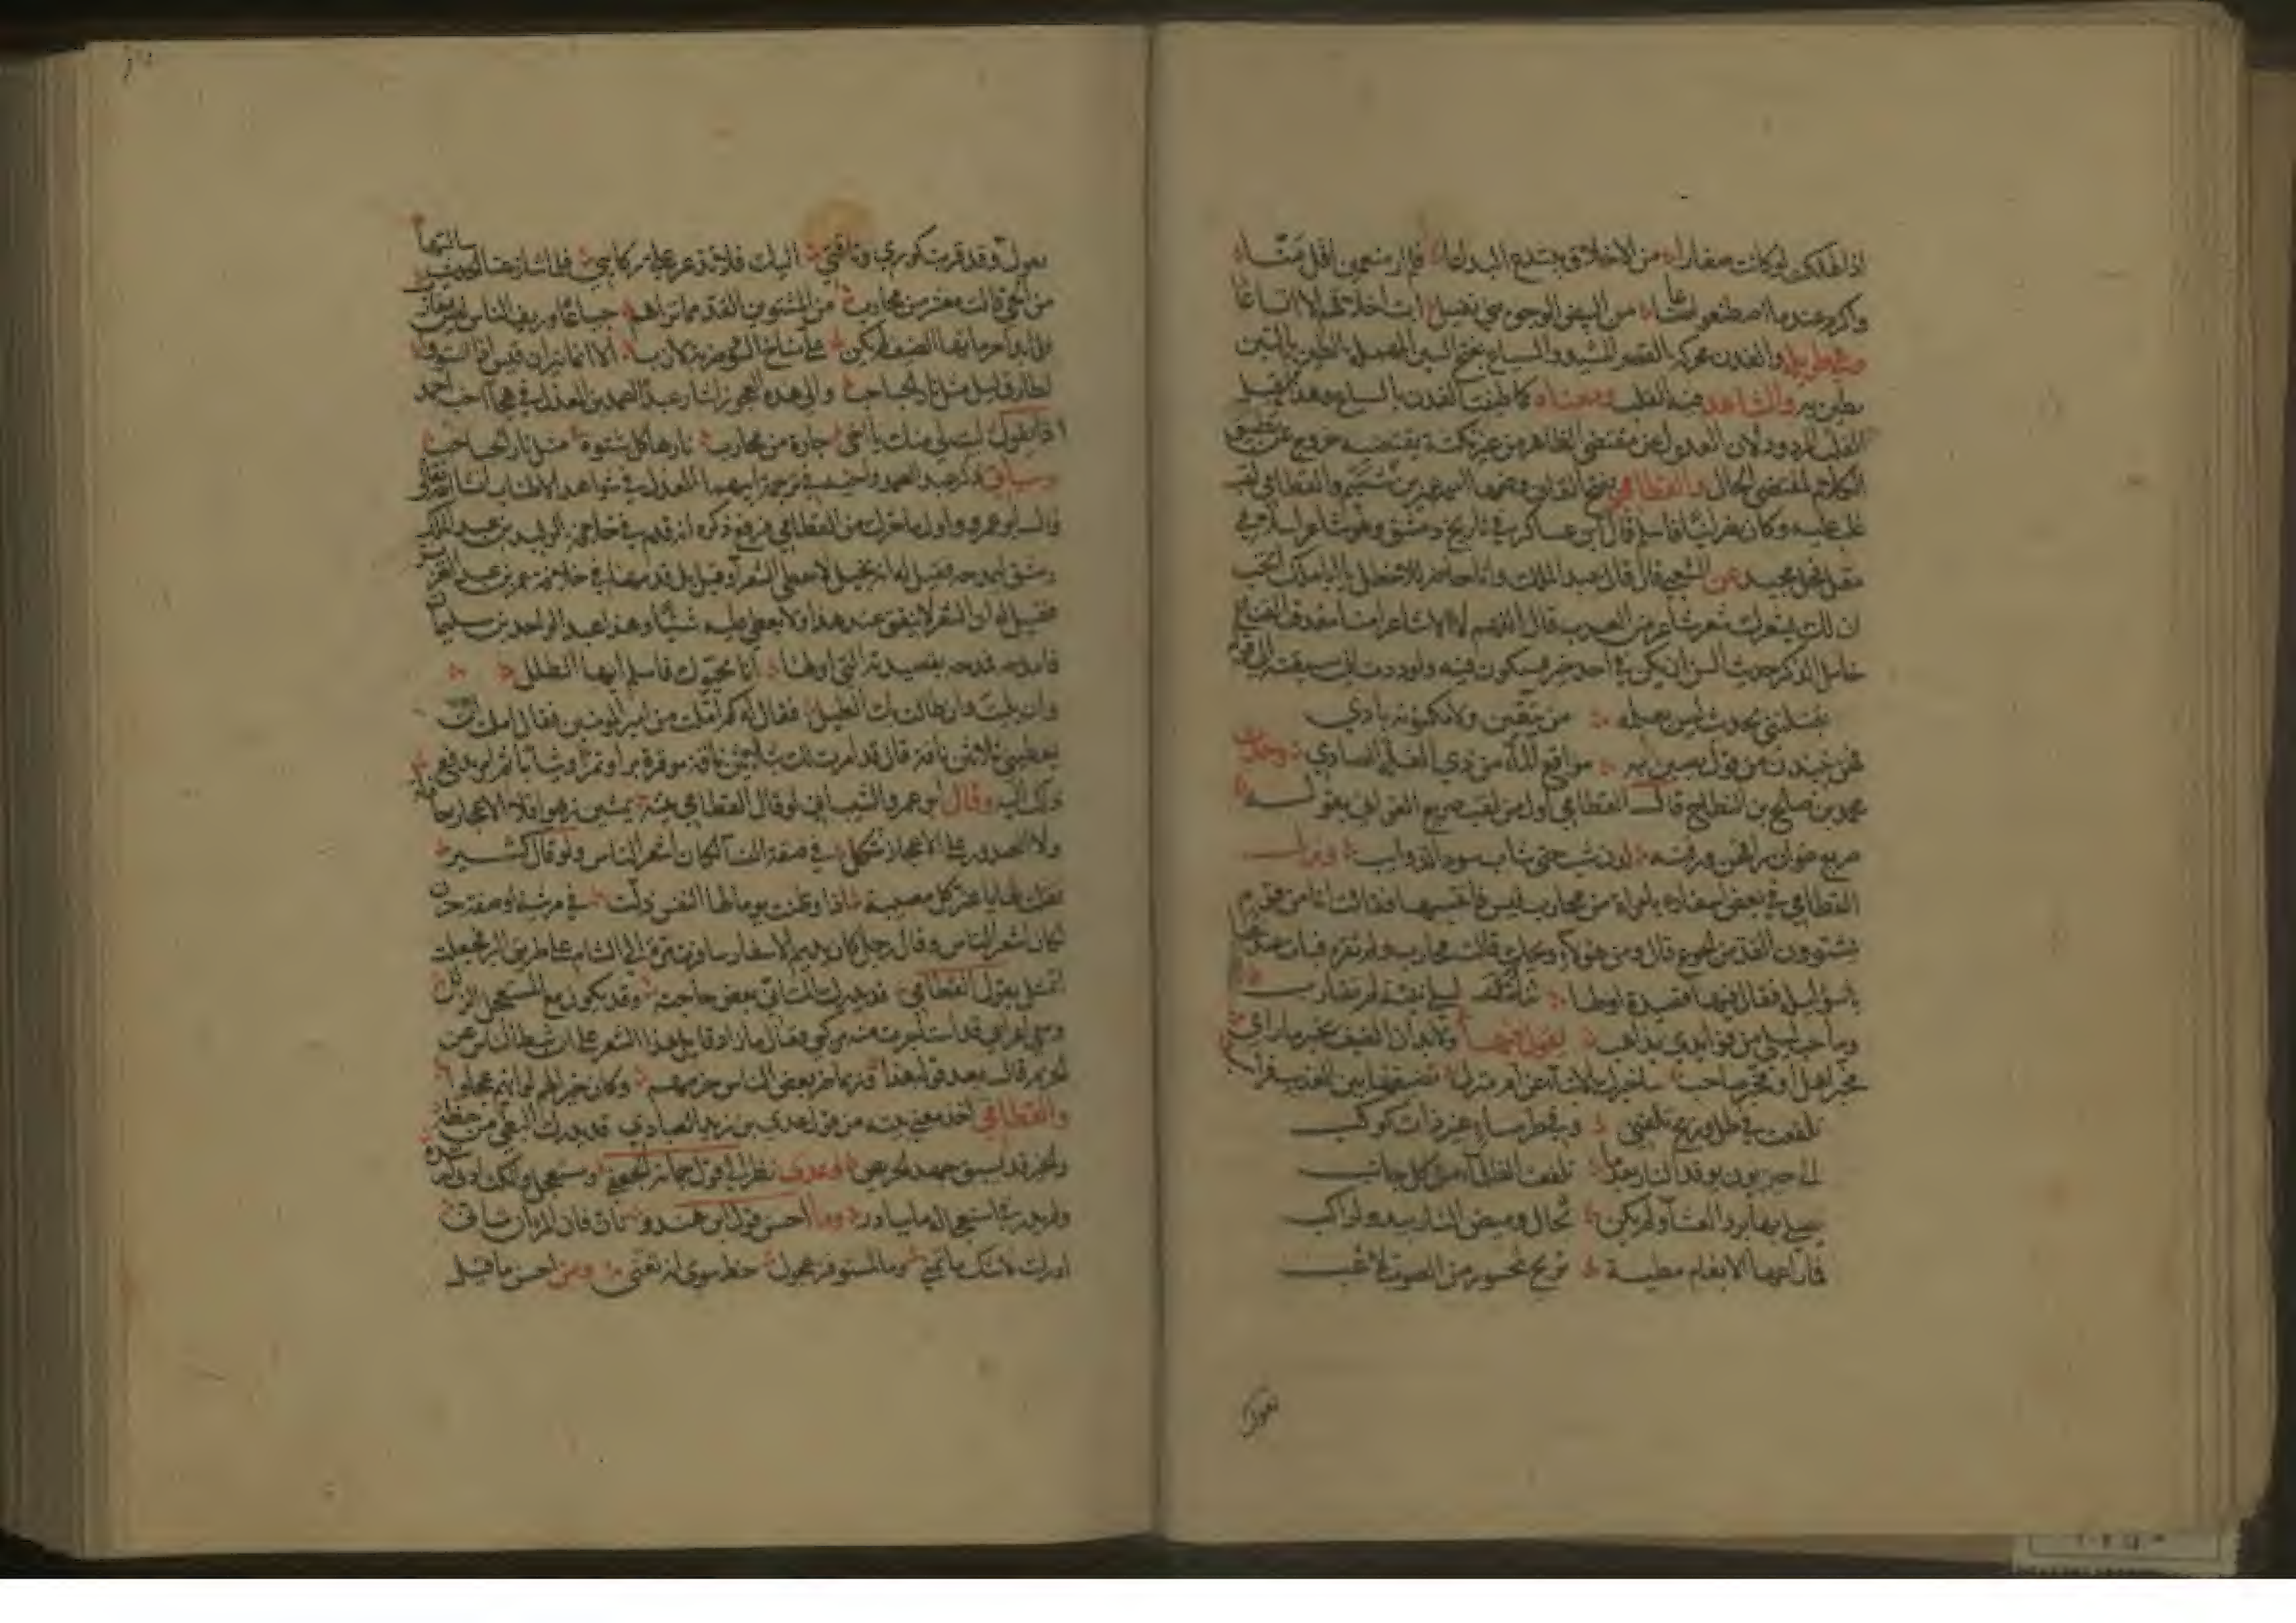 من الاخلاق تبتدع البدعا فلم ار منعمين اقل منّا
واكرم عندما اصطنعونا من البيض الوجوه بني نفيل ابت اخلاقهم الا اتساعا
والفدن محركه القصر المشيد والسياع بفتح السين المهملة الطين بالتبن
يطين به والشاهد فيه القلب ومعناه كما طينت الفدن بالسياع وهذا
القلب المردود لان العدول عن مقتضى الظاهر من غير نكتة يقتضيه خروج عن تطبيق
الكلام لمقتضى الحال والقطامي بفتح القاف وضمها اسمه عمير بن شييم والقطامي لقب
غلب عليه وكان نصرانيا فاسلم قال ابن عساكر في تاريخ دمشق وهو شاعر اسلامي
مقل فحل مجيد عن الشعبي قال قال عبد الملك وانا حاضر للاخطل يا ابا مالك اتحب
ان لك بشعرك شعر شاعر من العرب قال اللهم لا الا شاعرا منا مغدف القناع
خامل الذكر حديث السن ان يكن في احد خير فسيكون فيه ولوددت اني سبقته الى قوله
يقتلننا بحديث ليس يعلمه من يتقين ولا مكنونه بادي
فهن ينبذن من قول يصبن به مواقع الماء من ذي الغلة الصادي وحدث
محمد بن صالح بن النطاح قال القطامي اول من لقب صريع الغواني بقوله
صريع غوان راقهن ورقنه لدن شب حتى شاب سود الذوائب ونزل
القطامي في بعض اسفاره بامراة من محارب قيس فانتسبها فقالت انا من قوم
يشتوون القد من الجوع قال ومن هؤلاء ويحك قالت محارب ولم تقره فبات عندها
باسوا ليل فقال فيها قصيدة اولها
وما حب ليلى من فؤادي بذاهب يقول فيها ولا بد ان الضيف يخبر ما راى
مخبر اهل او مخبر صاحب ساخبرك الانباء عن ام منزل تضيفتها بين العذيب فراسب
تلفعت في طل وريح تلفني وفي طرمساء غير ذات كوكب
الى حيزبون توقد النار بعدما تلفعت الظلماء من كل جانب
تصلى بها برد العشاء ولم تكن تخال وميض النار يبدو لراكب
فما راعها الا بغام مطية تريح بمحسور من الصوت لاغب
تقول
تقول وقد قربت كوري وناقتي اليك فلا تذعر علي ركائبي فلما تنازعنا الحديث سالتها
من الحي قالت معشر من محارب من المشتوين القد مما تراهم جياعا وريف الناس ليس بناضب
فلما بدا حرمانها الضيف لم يكن علي مناخ السوء ضربة لازب الا انما نيران قيس اذا شتوا
لطارق ليل مثل نار الحباحب والى هذه العجوز اشار عبد الصمد بن المعذل في هجاء اخيه احمد
اذ يقول ليت لي منك يا اخي جارة من محارب نارها كل شتوة مثل نار الحباحب
وسياتي ذكر عبد الصمد واخيه في ترجمة ابيهما المعذل في شواهد الاطناب ان شا الله تعالى
قال ابو عمرو واول ما حرك من القطامي فرفع ذكره انه قدم في خلافة الوليد بن عبد الملك
دمشق ليمدحه فقيل له انه بخيل لا يعطي الشعراء وقيل بل قدمها في خلافة عمر بن عبد العزيز
فقيل له ان الشعر لا ينفق عند هذا ولا يعطي عليه شيئا وهذا عبد الواحد بن سليمان
فامدحه فمدحه بقصيدته التي اولها انا محيوك فاسلم ايها الطلل
وان بليت وان طالت بك الطيل فقال له كم املت من امير المؤمنين فقال املت ان
يعطيني ثلاثين ناقة قال قد امرت لك بخمسين ناقة موقرة برا وتمرا وثيابا ثم امر بدفع
ذلك اليه وقال ابو عمرو الشيباني لو قال القطامي بيته يمشين زهوا فلا الاعجاز خاذلة
ولا الصدور على الاعجاز تتكل في صفة النساء لكان اشعر الناس ولو قال كثير
فقلت لها يا عز كل مصيبة اذا وطنت يوما لها النفس ذلت في مرثية او صفة حرب
لكان اشعر الناس وقال رجل كان يديم الاسفار سافرت مرة الى الشام على طريق البر فجعلت
اتمثل بقول القطامي قد يدرك المتاني بعض حاجته وقد يكون مع المستعجل الزلل
ومعي اعرابي قد استاجرت منه مركبي فقال ما زاد قايل هذا الشعر على ان يثبط الناس عن
الحزم فهلا قال بعد قوله هذا وربما ضر بعض الناس حزمهم وكان خيرا لهم لو انهم عجلوا
والقطامي اخذ معنى بيته من قول عدي بن زيد العبادي قد يدرك المبطي من حظه
والخير قد يسبق جهد الحريص وعدي نظر الى قول جمانة الجعفي ومستعجل والمكث ادنى لرشده
ولم يدر في استعجاله ما يبادر وما احسن قول ابن هندو تان فان المرء ان شاقى
ادرك لا شك ما تمنى وما لمستوفز عجول حظ سوى انه تعنى ومن احسن ما قيل